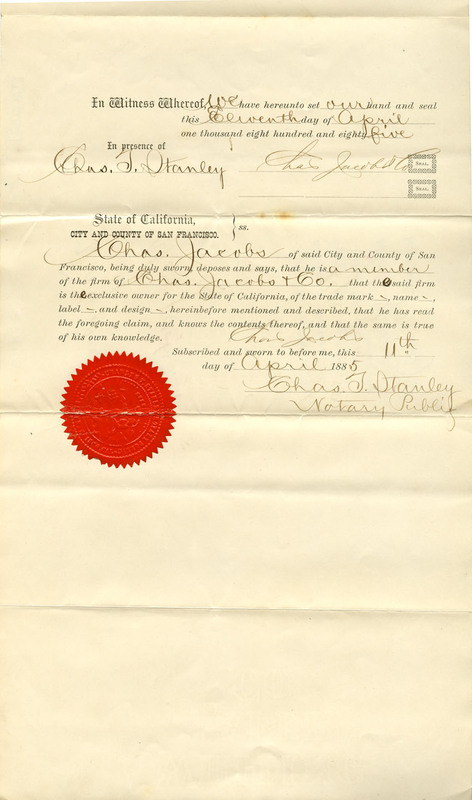 In Witness Whereof, We have hereunto set our hand and seal
this Eleventh day of April
one thousand eight hundred and eighty five
In presence of
Chas. T. Stanley } Chas Jacobs & Co SEAL.
SEAL.
State of California, } ss.
CITY AND COUNTY OF SAN FRANCISCO.
Chas. Jacobs of said City and County of San
Francisco, being duly sworn, deposes and says, that he is a member
of the firm of Chas. Jacobs & Co. that the said firm
is the exclusive owner for the State of California, of the trade mark ~, name ~,
label ~ and design ~, hereinbefore mentioned and described, that he has read
the foregoing claim, and knows the contents thereof, and that the same is true
of his own knowledge. Chas Jacobs
Subscribed and sworn to before me, this 11th
day of April 1885
Chas. T. Stanley
Notary Public